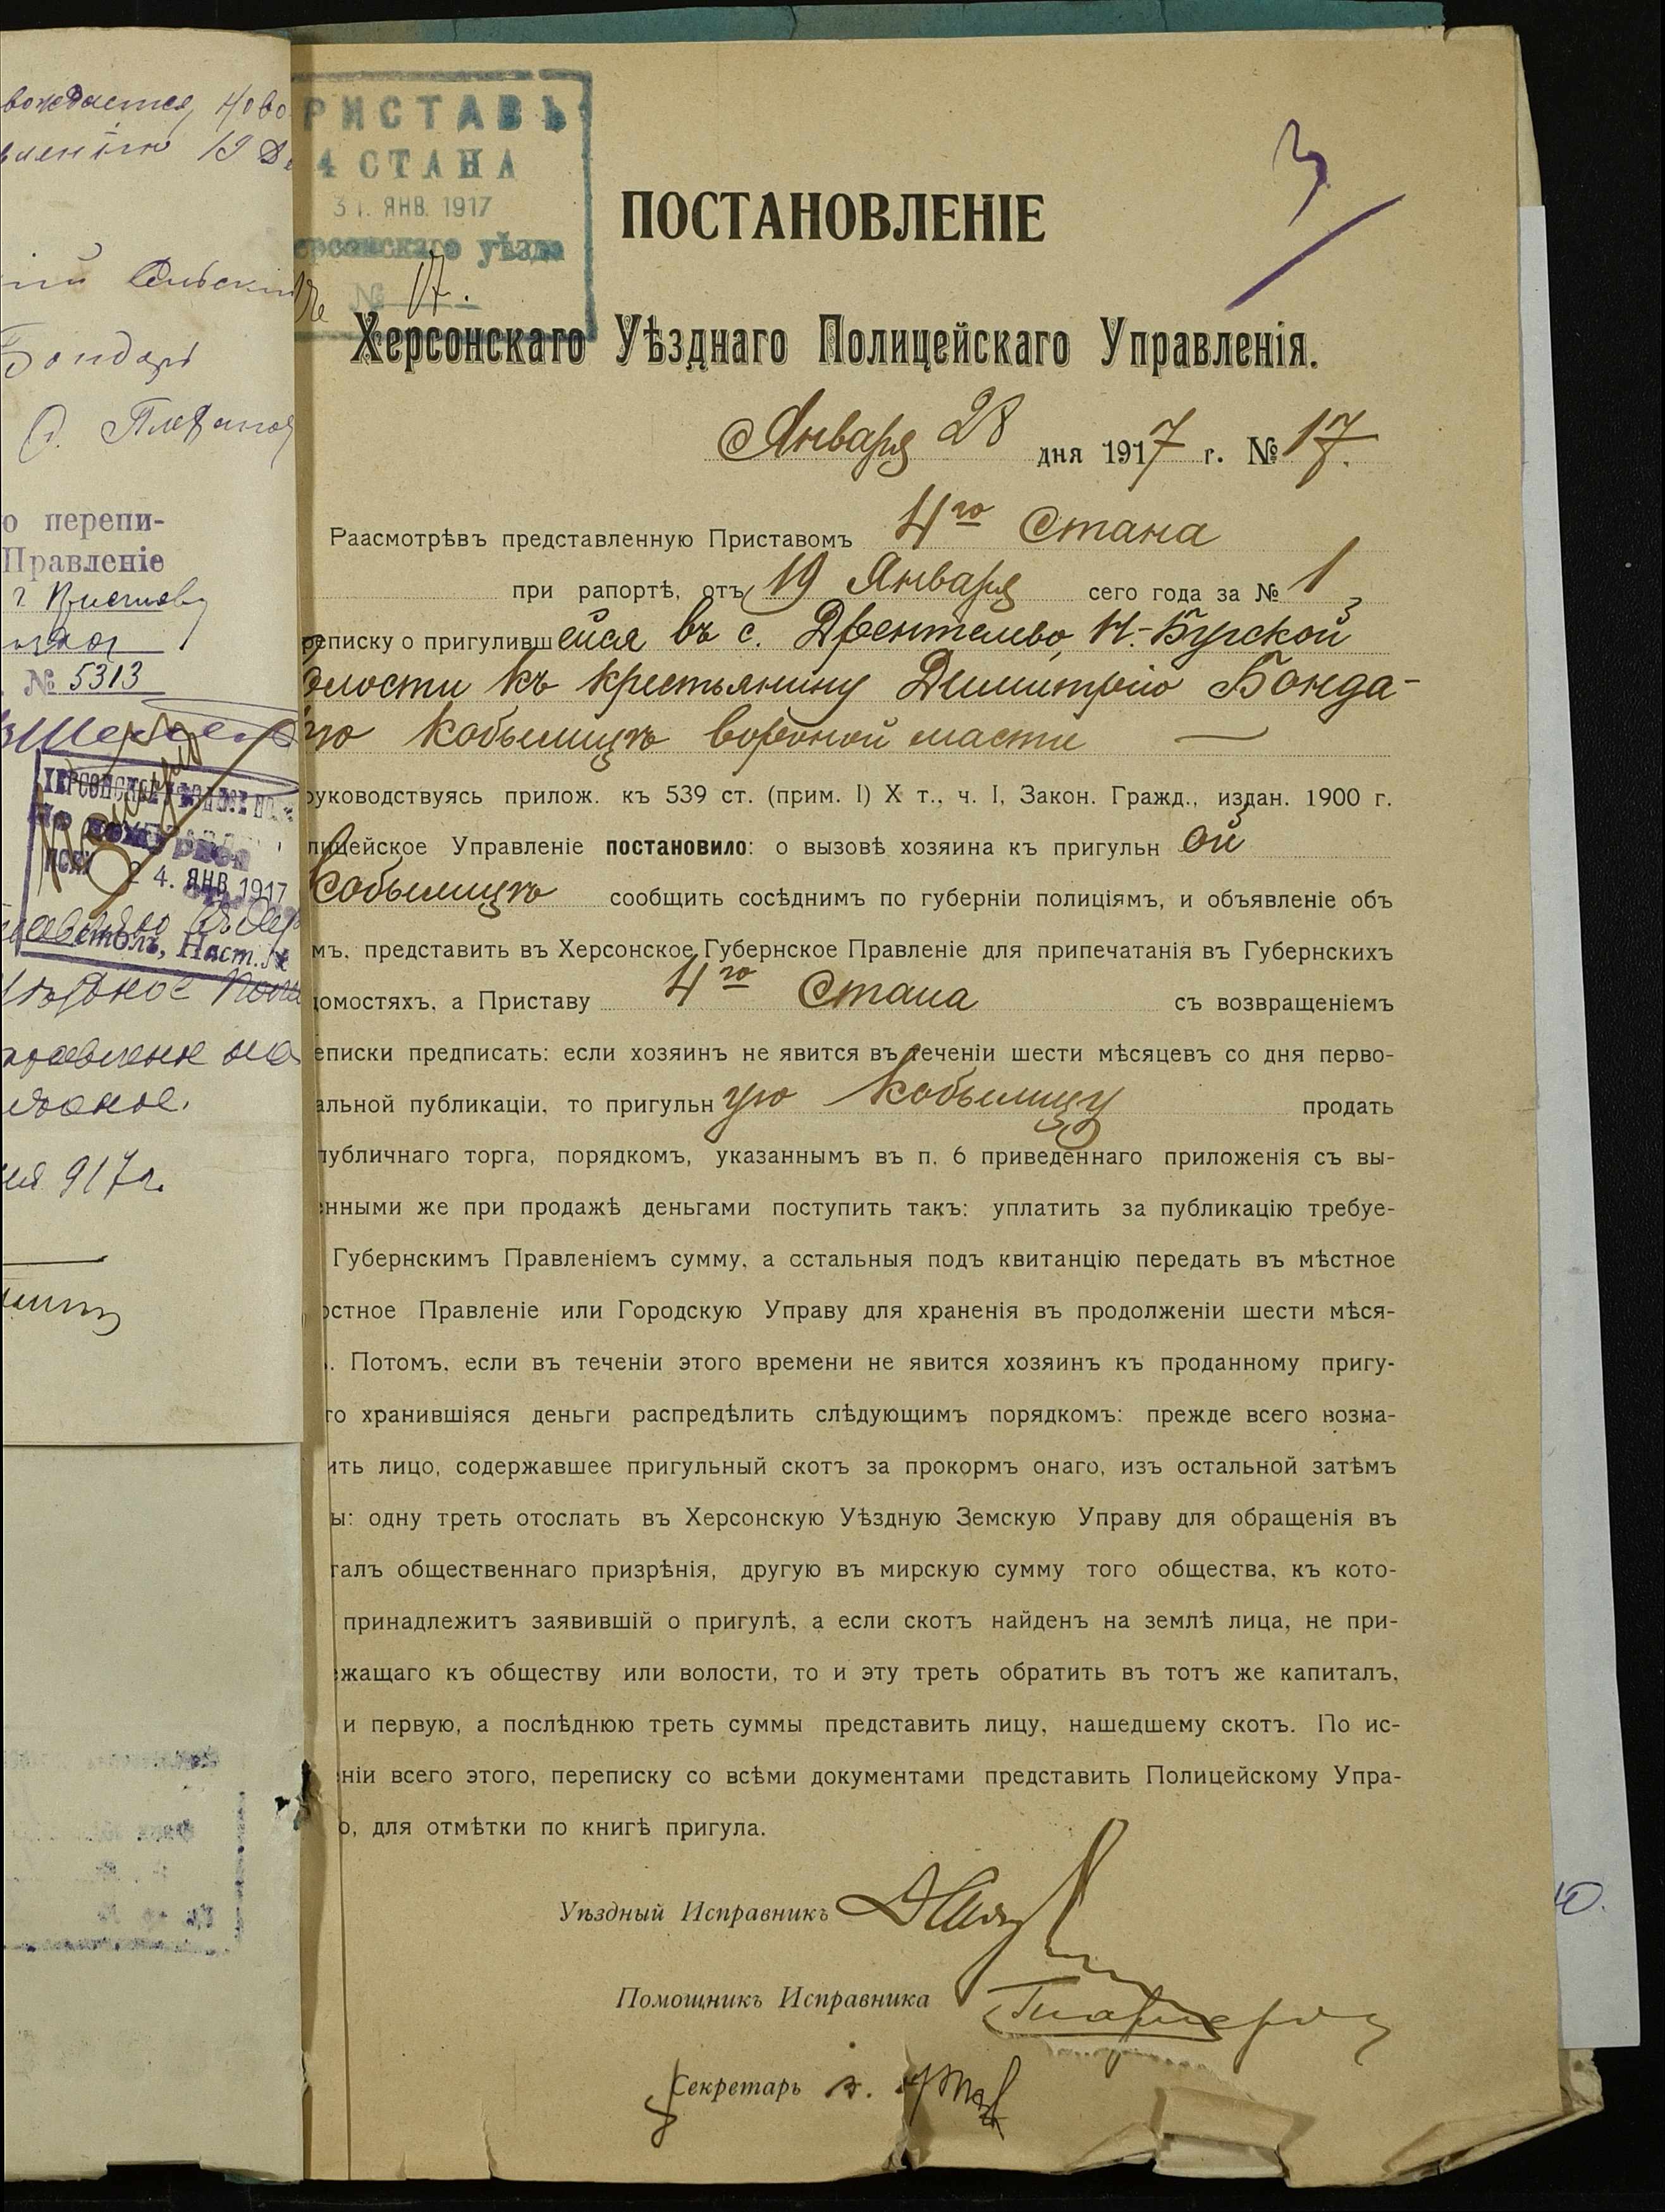 вождается Ново
19
Бондарь
о перепи-
Правленіе
г. Приставу
№ 5313
24. ЯНВ 1917
столъ, Наст. №
917 г.
РИСТАВЪ
4 СТАНА
31. ЯНВ. 1917
ерсонскаго уѣзда
№ 17.
3
ПОСТАНОВЛЕНІЕ
Херсонскаго Уѣзднаго Полицейскаго Управленія.
Января 28 дня 1917 г. № 17.
Раасмотрѣвъ представленную Приставомъ 4го Стана
при рапортѣ, отъ 19 Января сего года за № 1
реписку о пригулившейся въ с. Дрентельво, Н.-Бугской
олости къ крестьянину Димитрію Бонда-
рю кобылицѣ вороной масти —
руководствуясь прилож. къ 539 ст. (прим. I) X т., ч. I, Закон. Гражд., издан. 1900 г.
лицейское Управленіе постановило: о вызовѣ хозяина къ пригульн ой
кобылицѣ сообщить сосѣднимъ по губерніи полиціямъ, и объявленіе объ
мъ, представить въ Херсонское Губернское Правленіе для припечатанія въ Губернскихъ
домостяхъ, а Приставу 4го Стана съ возвращеніемъ
еписки предписать: если хозяинъ не явится въ теченіи шести мѣсяцевъ со дня перво-
альной публикаціи, то пригульн ую кобылицу продать
публичнаго торга, порядкомъ, указаннымъ въ п. 6 приведеннаго приложенія съ вы-
енными же при продажѣ деньгами поступить такъ: уплатить за публикацію требуе-
Губернскимъ Правленіемъ сумму, а сстальныя подъ квитанцію передать въ мѣстное
остное Правленіе или Городскую Управу для храненія въ продолженіи шести мѣся-
. Потомъ, если въ теченіи этого времени не явится хозяинъ къ проданному пригу-
го хранившіяся деньги распредѣлить слѣдующимъ порядкомъ: прежде всего возна-
ить лицо, содержавшее пригульный скотъ за прокормъ онаго, изъ остальной затѣмъ
ы: одну треть отослать въ Херсонскую Уѣздную Земскую Управу для обращенія въ
талъ общественнаго призрѣнія, другую въ мирскую сумму того общества, къ кото-
принадлежитъ заявившій о пригулѣ, а если скотъ найденъ на землѣ лица, не при-
жащаго къ обществу или волости, то и эту треть обратить въ тотъ же капиталъ,
и первую, а послѣднюю треть суммы представить лицу, нашедшему скотъ. По ис-
ніи всего этого, переписку со всѣми документами представить Полицейскому Упра-
о, для отмѣтки по книгѣ пригула.
Уѣздный Исправникъ
Помощникъ Исправника
Секретарь